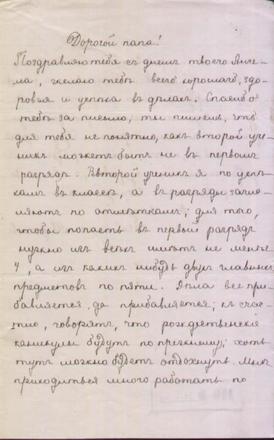 Дорогой папа!
Поздравляю тебя съ днемъ твоего Анге-
ла, желаю тебѣ всего хорошаго, здо-
ровья и успѣха въ дѣлахъ. Спасибо
тебѣ за письмо, ты пишешь, что
для тебя не понятно, какъ второй уче-
никъ можетъ быть не въ первомъ
разрядѣ. Второй ученикъ я по успѣ-
хамъ въ классѣ, а въ разряды зачис-
ляютъ по отмѣткамъ; для того,
чтобы попасть въ первый разрядъ
нужно изъ всѣхъ имѣть не менѣе
4, а изъ какихъ нибудь двухъ главныхъ
предметовъ по пяти. Дѣла все при-
бавляется, да прибавляется; къ счас-
тію, говорятъ, что рождественскія
каникулы будутъ по прежнему; хоть
тутъ можно будетъ отдохнуть. Мнѣ
приходиться много работать по